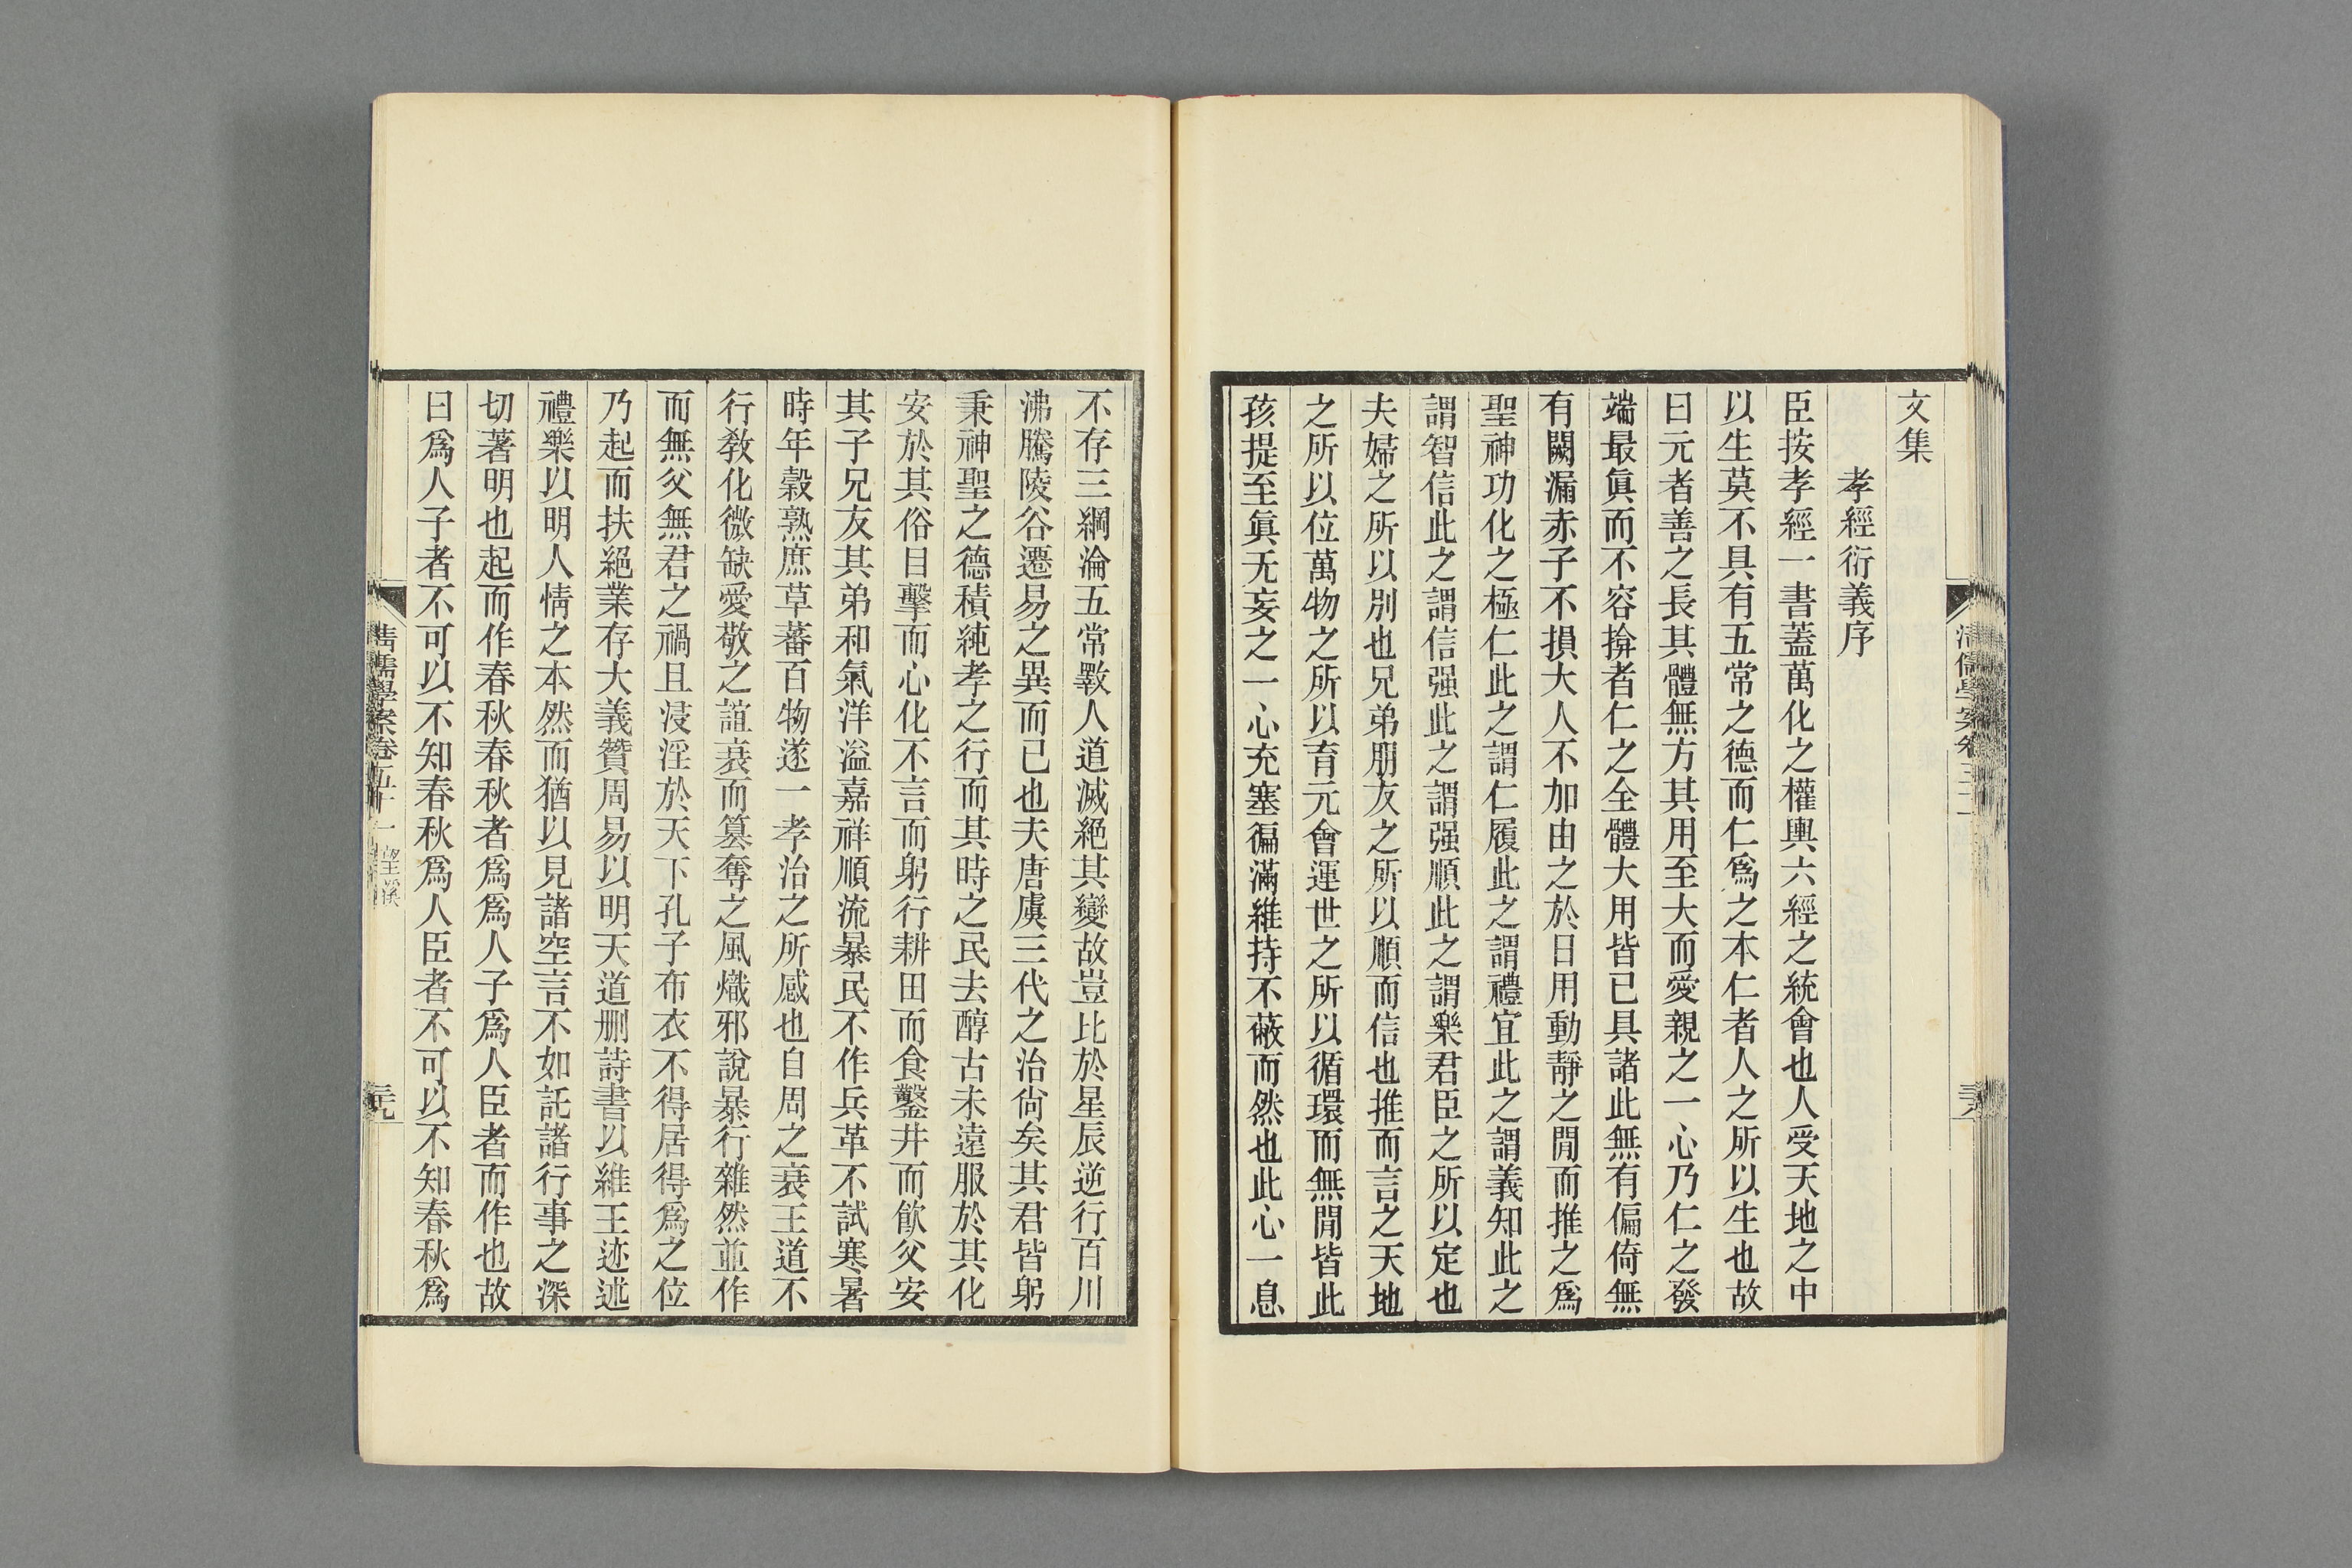 文集
孝經衍義序
臣按孝經一書蓋萬化之權輿六經之統會也人受天地之中
以生莫不具有五常之德而仁爲之本仁者人之所以生也故
曰元者善之長其體無方其用至大而愛親之一心乃仁之發
端最眞而不容揜者仁之全體大用皆已具諸此無有偏倚無
有闕漏赤子不損大人不加由之於日用動靜之閒而推之爲
聖神功化之極仁此之謂仁履此之謂禮宜此之謂義知此之
謂智信此之謂信强此之謂强順此之謂樂君臣之所以定也
夫婦之所以別也兄弟朋友之所以順而信也推而言之天地
之所以位萬物之所以育元會運世之所以循環而無閒皆此
孩提至眞无妄之一心充塞徧滿維持不蔽而然也此心一息
不存三綱淪五常斁人道滅絕其變故豈比於星辰逆行百川
沸騰陵谷遷易之異而已也夫唐虞三代之治尙矣其君皆躬
秉神聖之德積純孝之行而其時之民去醇古未遠服於其化
安於其俗目擊而心化不言而躬行耕田而食鑿井而飮父安
其子兄友其弟和氣洋溢嘉祥順流暴民不作兵革不試寒暑
時年穀熟庶草蕃百物遂一孝治之所感也自周之衰王道不
行敎化微缺愛敬之誼衰而篡奪之風熾邪說暴行雜然並作
而無父無君之禍且浸淫於天下孔子布衣不得居得爲之位
乃起而扶絕業存大義贊周易以明天道删詩書以維王迹述
禮樂以明人情之本然而猶以見諸空言不如託諸行事之深
切著明也起而作春秋春秋者爲爲人子爲人臣者而作也故
曰爲人子者不可以不知春秋爲人臣者不可以不知春秋爲
儒學案卷五十一 望溪 三九